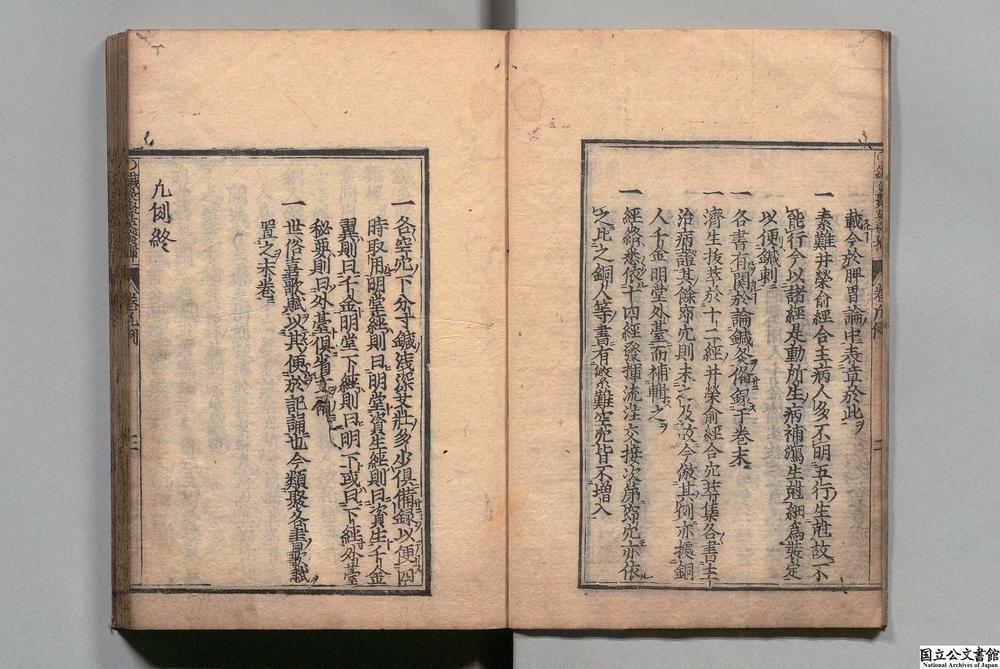 載今於脾胃論中表章於此
一素難井榮俞經合主病人多不明五行生尅故不
能行今以諸經是動所生病補瀉生尅細爲裝定
以便鍼刺
一各書有関於論鍼灸俻録于卷末
一濟生拔萃於十二經井榮俞經合穴等集各書主
治病證其餘窌穴則未之及故今倣其例亦據銅
人千金明堂外臺而補輯之
一經絡悉依十四經發揮流注交接次第窌穴亦依
之此之銅人等書有繁難空穴皆不增入
卷凡例
二
一各空穴下分寸鍼浅深艾壯多少俱備録以便四
時取用明堂經則曰明堂資生經則曰資生千金
翼則曰千金明堂下經則曰明下或曰下經外臺
秘要則曰外臺俱省文
一世俗喜歌賦以其便於記誦也今類聚各書歌賦
置之末卷
凡例終
卷凡例
三
国立公文書館
National Archives of Japan